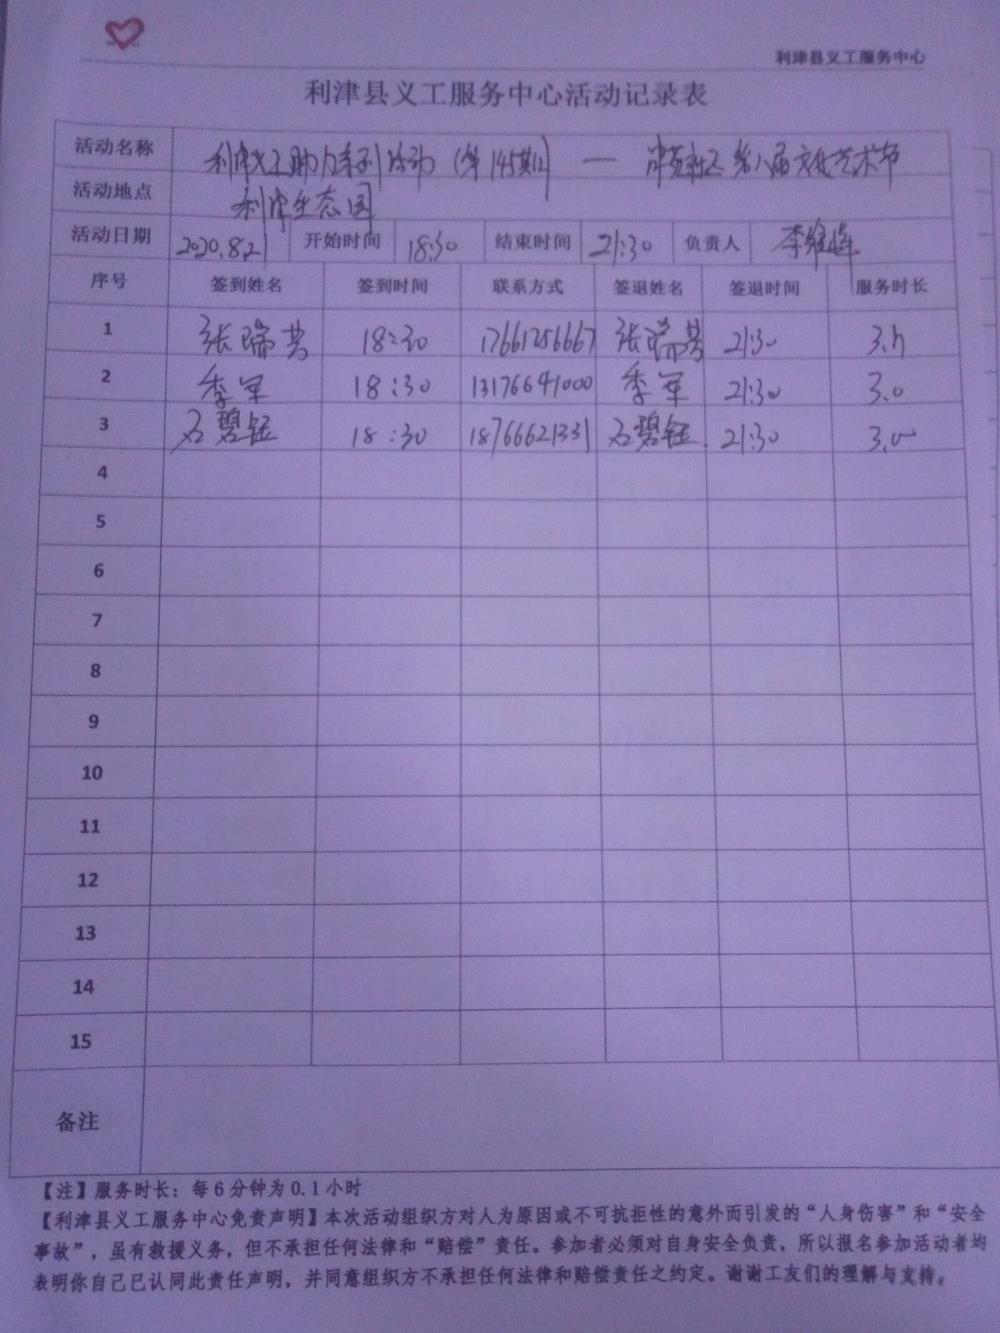 利津县义工服务中心
利津县义工服务中心活动记录表
活动名称 利津义工助力系列活动(第145期) — 津苑社区第八届文化艺术节
活动地点 利津生态园
活动日期 2020.8.21 开始时间 18:30 结束时间 21:30 负责人 李维峰
序号 签到姓名 签到时间 联系方式 签退姓名 签退时间 服务时长
1 张瑞芳 18:30 17661256667 张瑞芳 21:30 3.0
2 季军 18:30 13176641000 季军 21:30 3.0
3 石碧钰 18:30 18766621331 石碧钰 21:30 3.0
4
5
6
7
8
9
10
11
12
13
14
15
备注
【注】服务时长：每6分钟为0.1小时
【利津县义工服务中心免责声明】本次活动组织方对人为原因或不可抗拒性的意外而引发的“人身伤害”和“安全
事故”，虽有救援义务，但不承担任何法律和“赔偿”责任。参加者必须对自身安全负责，所以报名参加活动者均
表明你自己已认同此责任声明，并同意组织方不承担任何法律和赔偿责任之约定。谢谢工友们的理解与支持。